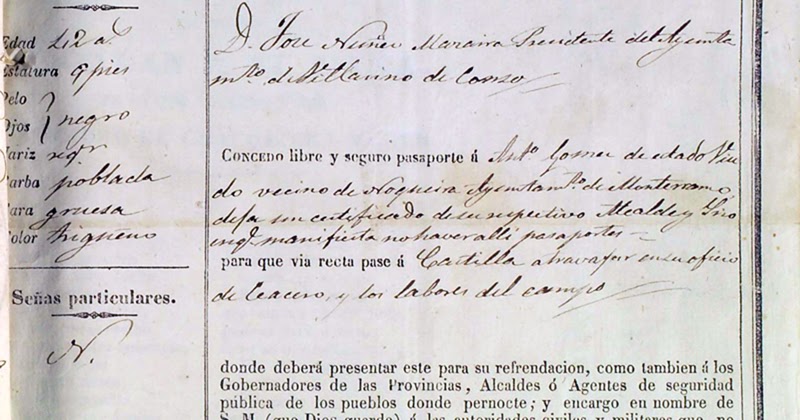 Edad 42 a.s
Estatura 9 pies
Pelo
Ojos } negro
Nariz regr
Barba poblada
Cara gruesa
Color trigueño
Señas particulares.
N.
D. Jose Nuñez Presidente del Ayunta
mto de Villarino de Conso
CONCEDO libre y seguro pasaporte á Anto Gomez de estado Viu
do vecino de Nogueira Ayuntamto de Monterramo,
un certificado de su respectivo Alcalde y
manifiesta no haver alli pasaportes
para que via recta pase á Castilla a travajar en su oficio
de y los labores del campo
donde deberá presentar este para su refrendacion, como tambien á los
Gobernadores de las Provincias, Alcaldes ó Agentes de seguridad
pública de los pueblos donde pernocte; y encargo en nombre de
S. M. (que Dios guarde) á las autoridades civiles y militares que no